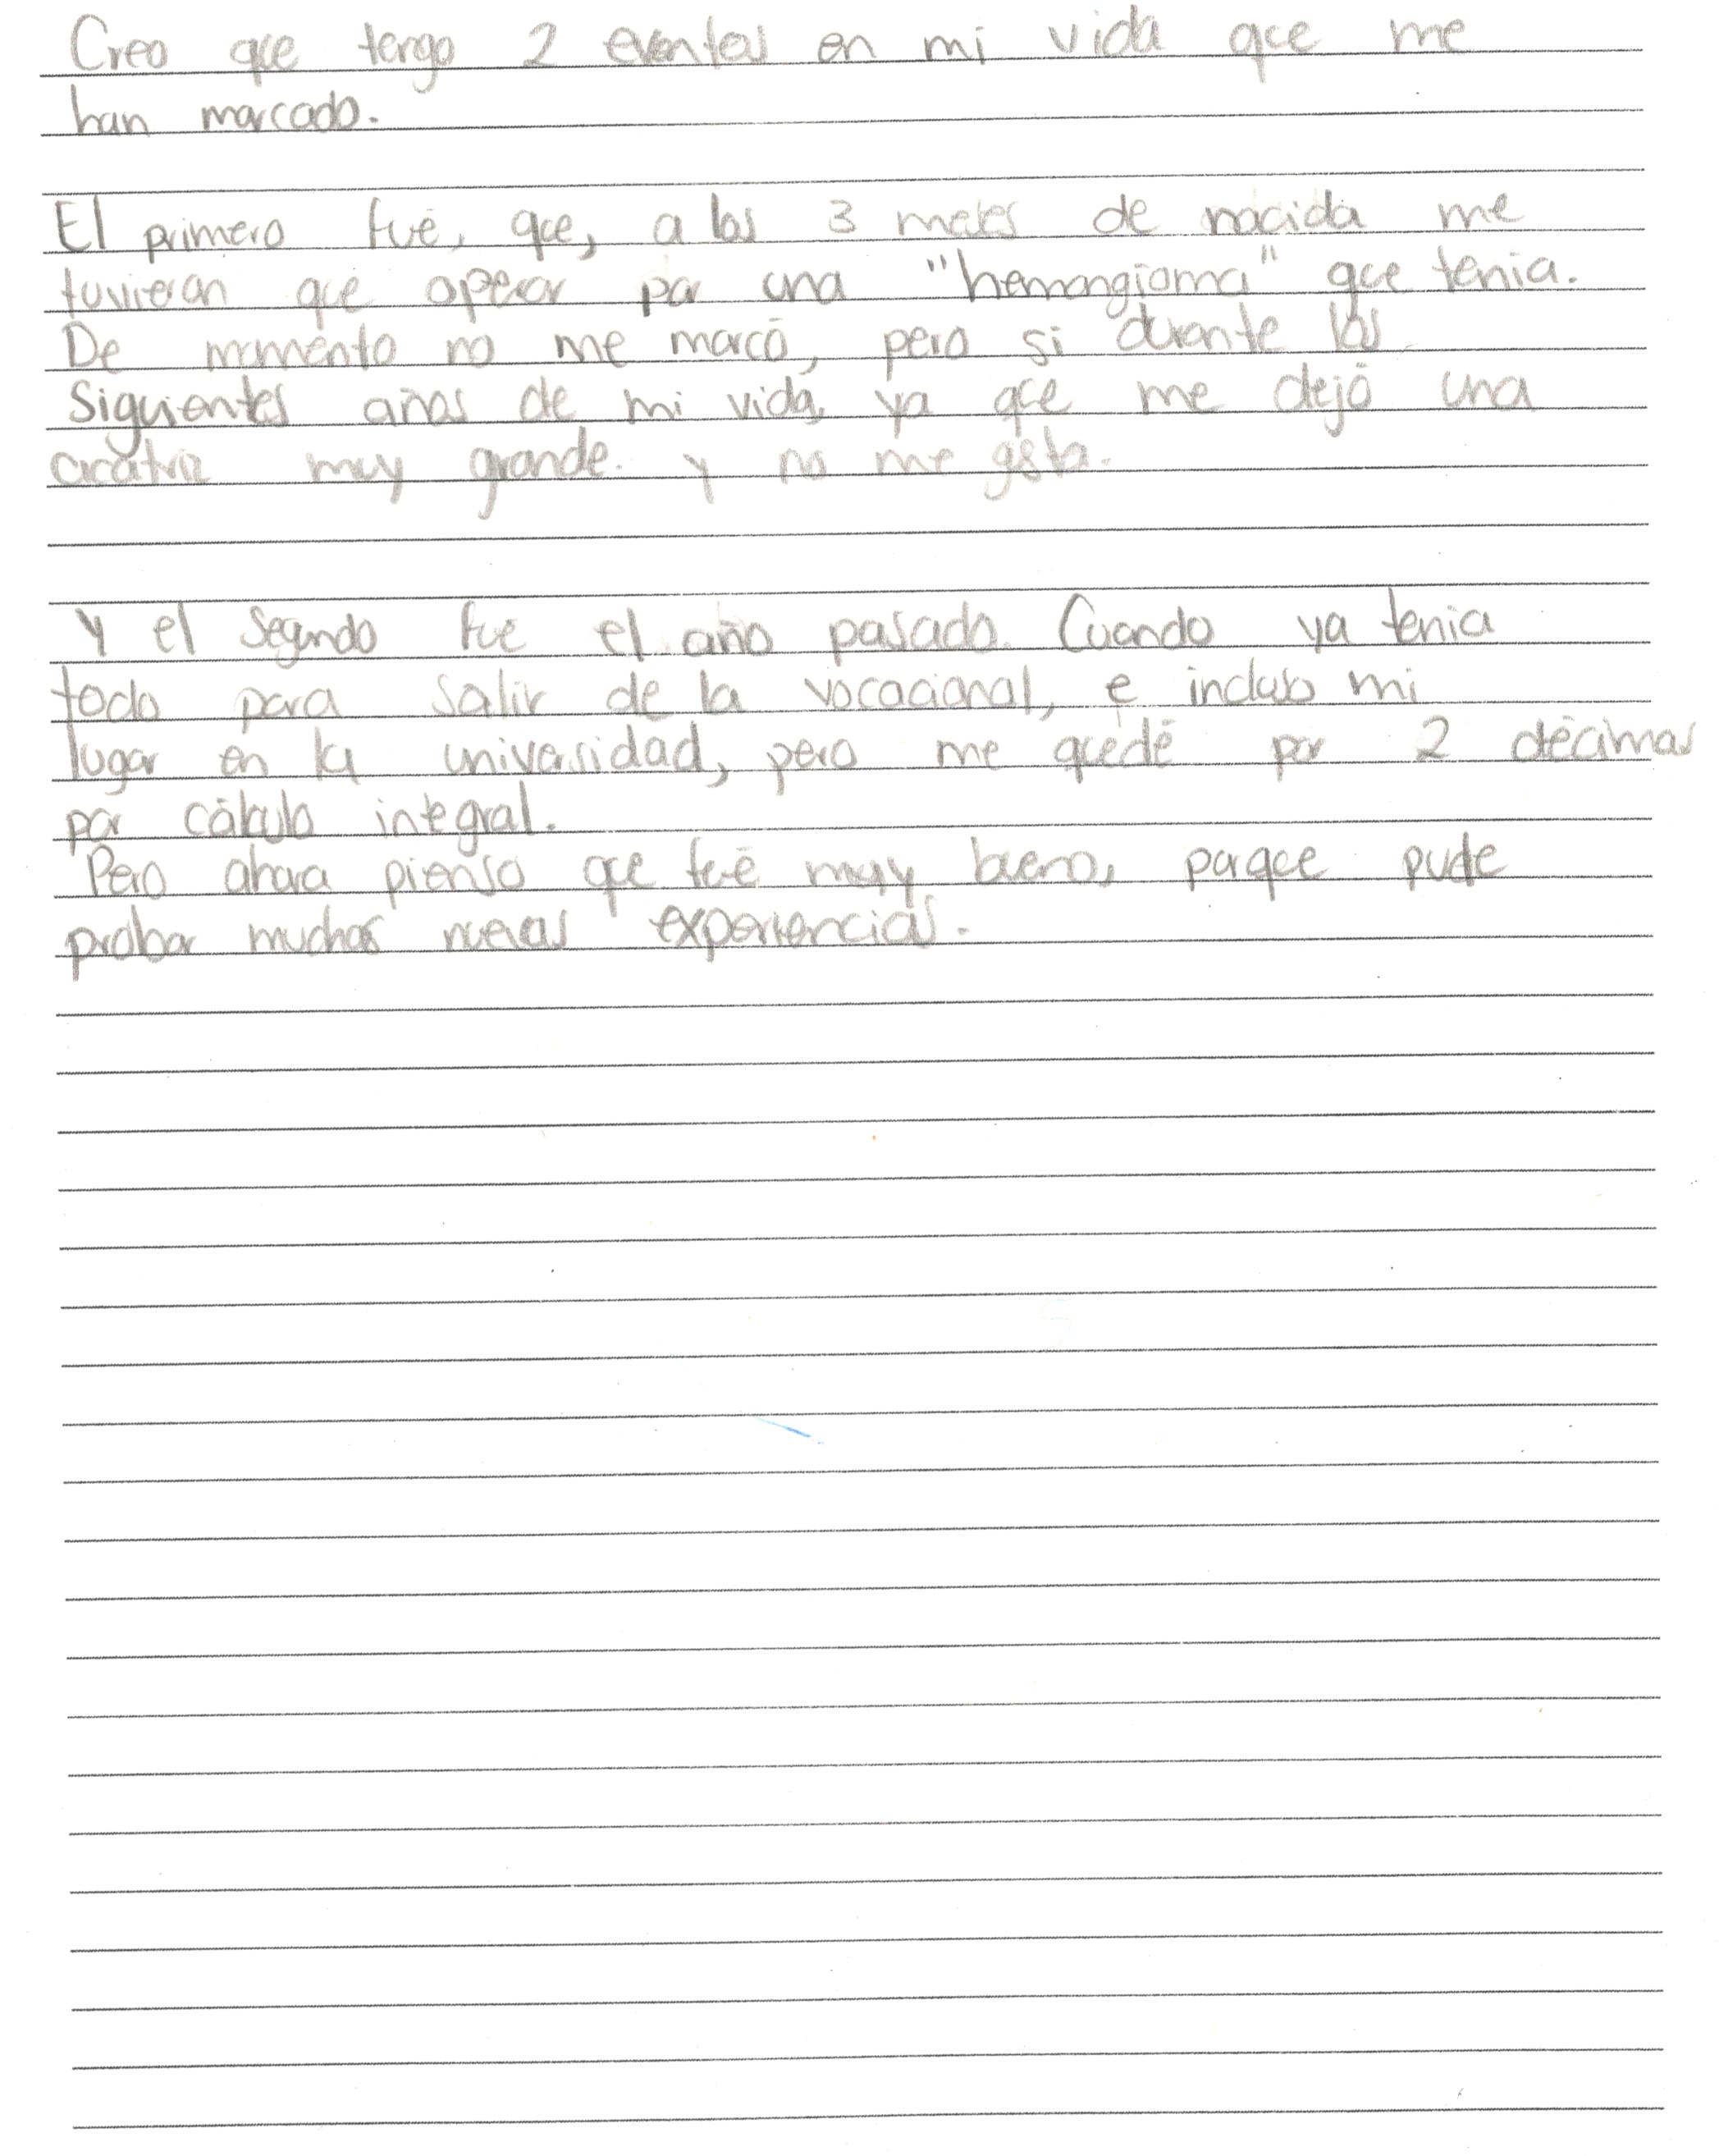 Creo que tengo 2 eventos en mi vida que me
han marcado.
El primero fué, que, a los 3 meses de nacida me
tuvieron que operar por una "hemangioma" que tenia.
De momento no me marcó, pero si durante los
siguientes años de mi vida, ya que me dejó una
cicatriz muy grande. y no me gsta.
Y el segundo fué el año pasado. Cuando ya tenia
todo para salir de la vocacional, e incluso mi
lugar en la universidad, pero me quedé por 2 décimas
por cálculo integral.
Pero ahora pienso que fué muy bueno, porque pude
probar muchas nuevas experiencias.